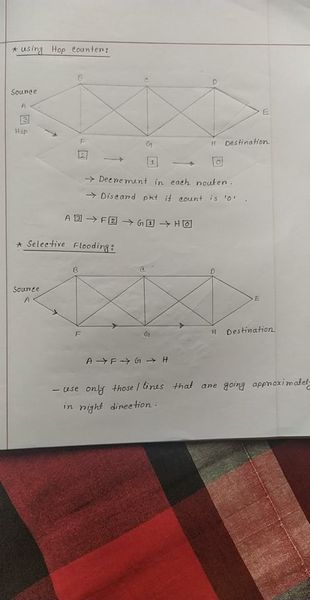 * Using Hop Counter:
B C D
Source
A E
3
Hop
F G H Destination
2 → 1 → 0
→ Decrement in each router.
→ Discard pkt if count is '0'.
A 3 → F 2 → G 1 → H 0
* Selective Flooding:
B C D
Source
A E
F G H Destination
A → F → G → H
- use only those / lines that are going approximately
in right direction.